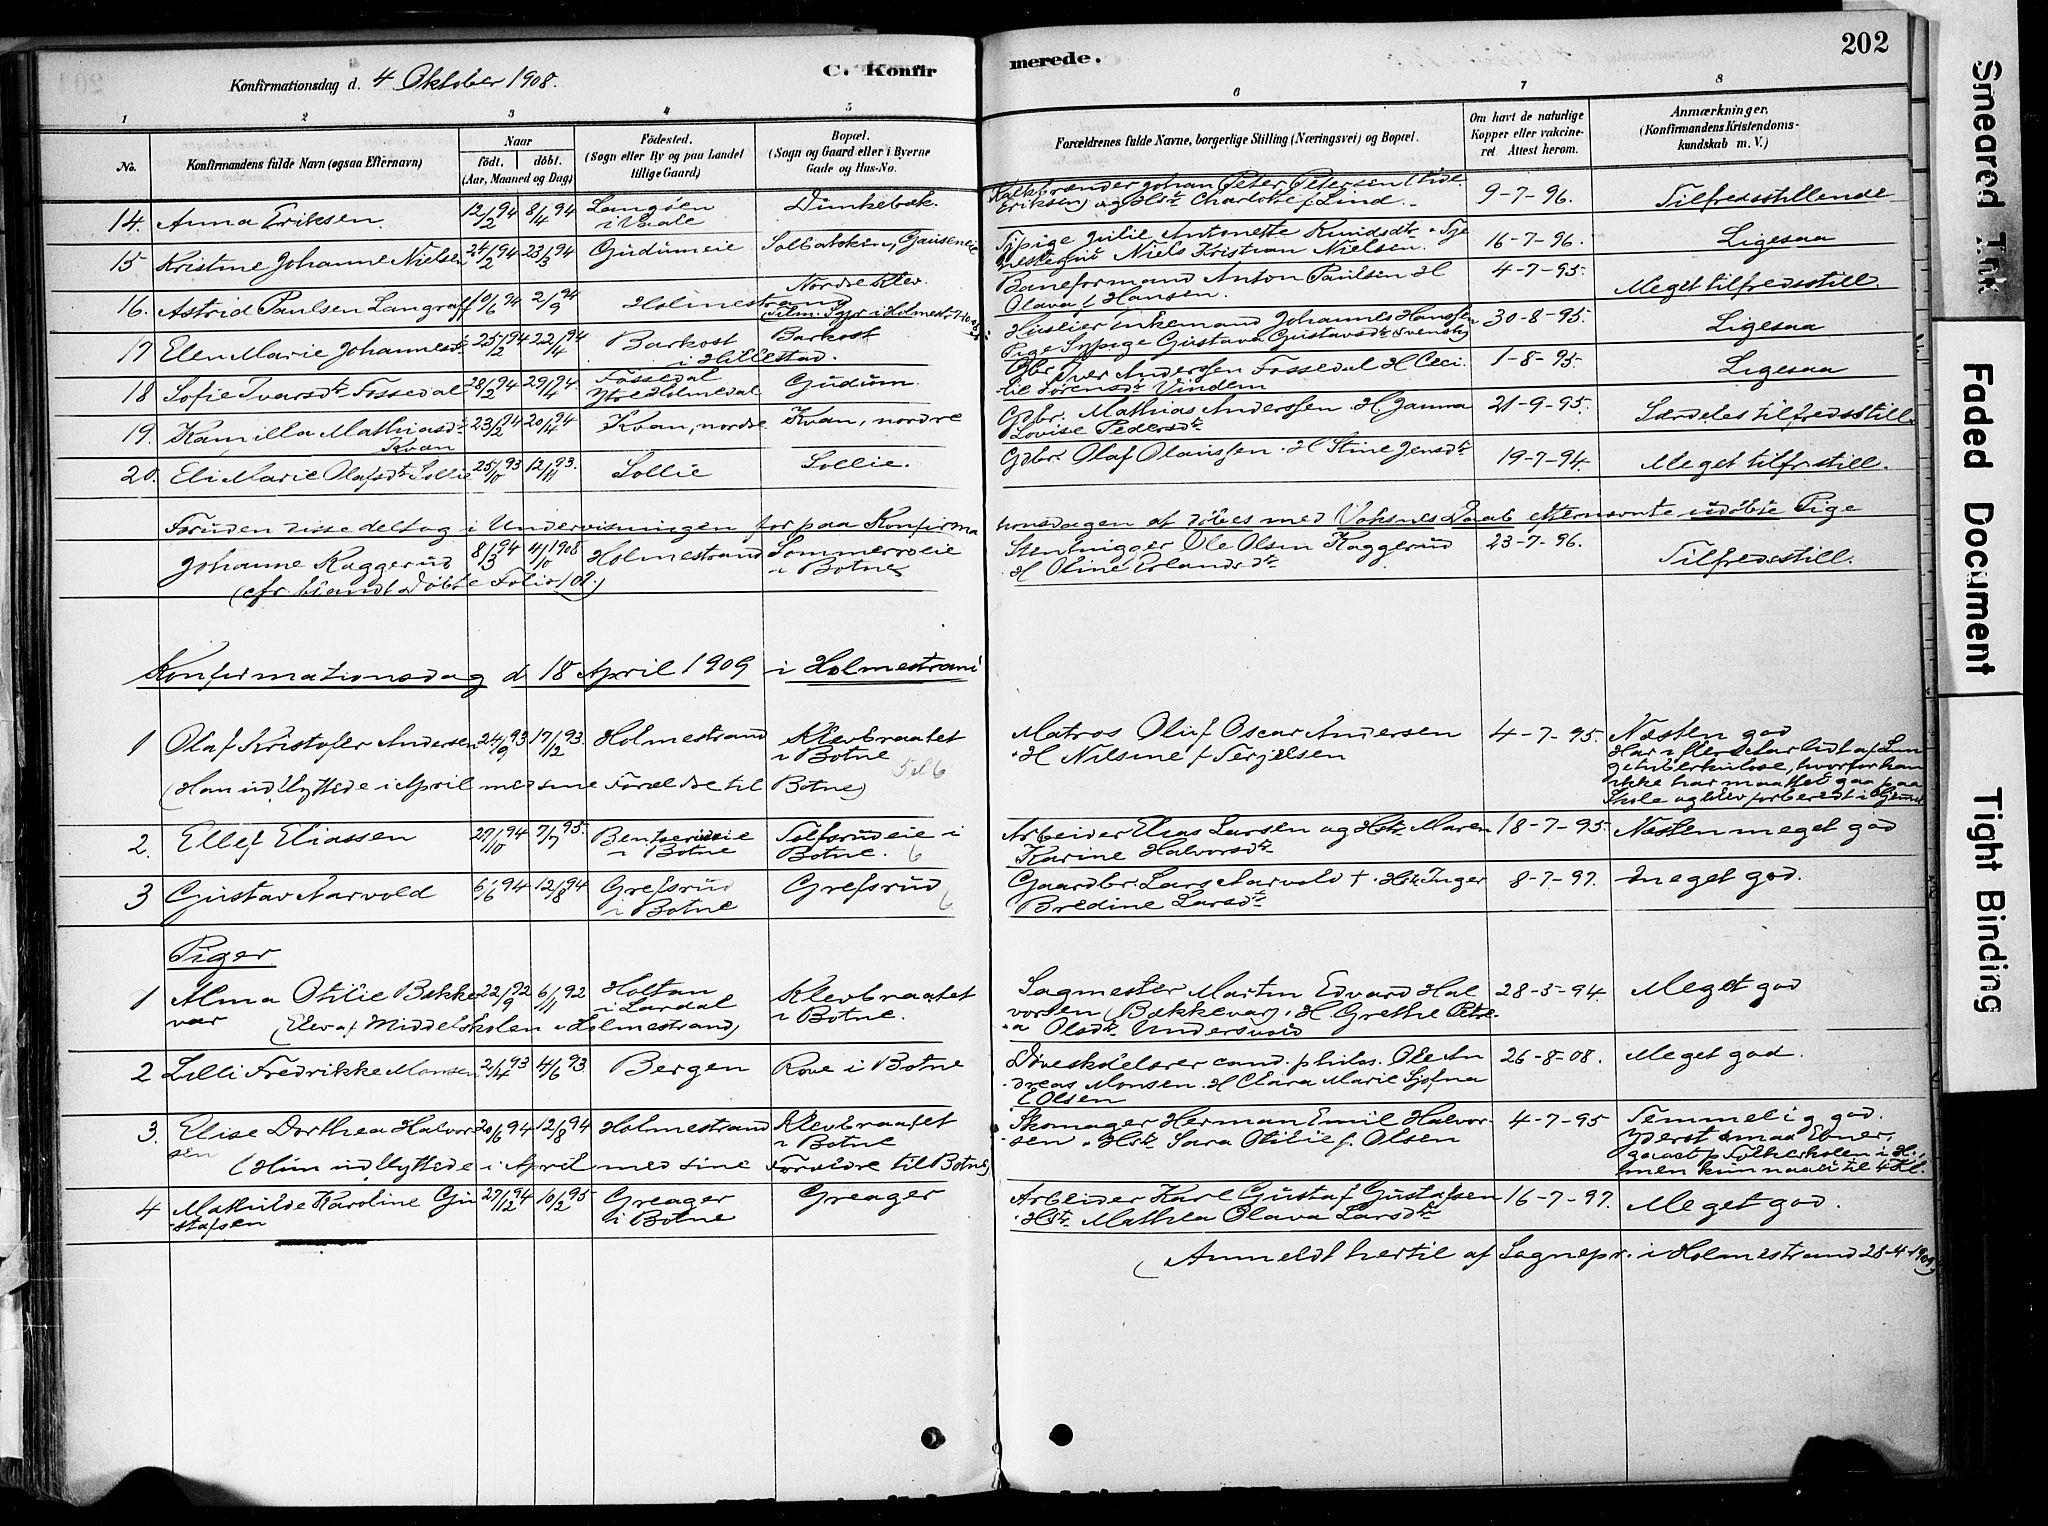 202
Konfirmationsdag d. 4 Oktober 1908.
C. Konfirmerede.
1 2 3 4 5 6 7 8
No.
Konfirmandens fulde Navn (ogsaa Efternavn)
Naar
født. døbt.
(Aar, Maaned og Dag)
Fødested.
(Sogn eller By og paa Landet
tillige Gaard)
Bopæl.
(Sogn og Gaard eller i Byerne
Gade og Hus-No.
Forældrenes fulde Navne, borgerlige Stilling (Næringsvei) og Bopæl.
Om havt de naturlige
Kopper eller vakcine-
ret Attest herom.
Anmærkninger.
(Konfirmandens Kristendoms-
kundskab m. V.)
14. Anna Eriksen. 12/2 94 8/4 94 Langøen Dunkebæk.
i Vaale
Johan Peter Petersen
Eriksen) og Hst. Charlotte f. Lind. 9-7-96. Tilfredsstillende
15 Kristine Johanne Nielsen 24/2 94 23/3 94 Gudumeie
Sypige Julie Antonette Knudsdtr.
Niels Kristian Nielsen. 16-7-96. Ligesaa
16. Astrid Paulsen Langraff 10/6 94 2/9 94 Holmestrand Nordre Klev.
Baneformand Anton Paulsen H
Olava f. Hansen. 4-7-95. Meget tilfredsstill.
17 Elen Marie Johannesdtr. 25/2 94 22/4 94 Barkost Barkost
i Hillestad.
Johannes Hanssen
Pige Sypige Gustava Gustavsdtr. 30-8-95. Ligesaa
18 Sofie Ivarsdtr. Fossedal 28/2 94 29/4 94 Fossedal Gudum.
Ytre Holmedal
Gbr. Iver Anderssen Fossedal H Ceci
lie Sørensdtr. Vindem 1-8-95. Ligesaa
19. Kamilla Mathiasdtr. 23/2 94 20/4 94 Kvan, nordre Kvan, nordre
Kvan
Gdbr. Mathias Anderssen. H. Janna
Lovise Pedersdtr. 21-9-95. Særdeles tilfredsstill.
20. Eli Marie Olafsdtr. Sollie 25/10 93 12/11 93. Sollie Sollie.
Gdbr. Olaf Olaussen. H Stine Jensdtr. 19-7-94. Meget tilfr.still.
Foruden disse deltog i Undervisningen for paa Konfirma
tionsdagen at døbes med Voksnes Daab efternævnte udøbte Pige
Johanne Kaggerud 8/3 94 4/10 1908 Holmestrand Sommerroeie
i Botne
Stenhugger Ole Olsen Kaggerud
H Oline Erlandsdtr. 23-7-96. Tilfredsstill.
(cfr. blandt Døbte Folio 102.)
Konfirmationsdag d 18 April 1909 i Holmestrand
1 Olaf Kristofer Andersen 24/9 93 17/12 93. Holmestrand Klevbraatet
i Botne
Matros Oluf Oscar Andersen
H Nilsine f. Terjelsen 4-7-95. Næsten god
Har i flere Aar lidt af Lun
getuberkulose, hvorfor han
ikke har maattet gaa paa
Skole og blev forberedt i
(Han udflyttede i April med sine Forældre til Botne)
2. Ellef Eliassen 27/10 94 7/7 95. Bentserudeie Solfsrudeie i
i Botne Botne. 6
Arbeider Elias Larsen og Hst. Maren
Karine Halvorsdtr. 18-7-95. Næsten meget god
3 Gustav Aarvold 6/6 94 12/8 94 Grefsrud Grefsrud
i Botne 6
Gaardbr. Lars Aarvold † . Hst. Inger
Bredine Larsdtr. 8-7-97. Meget god.
Piger
1 Alma Otilie Bække 22/9 92 6/11 92 Holtan Klevbraatet
var i Lardal i Botne.
(Elev af Middelskolen i Holmestrand)
Sagmester Martin Edvard Hal
vorsen (Bækkevar). H Grethe Petre
a Olsdtr. Undersvold 28-5-94. Meget god
2 Lilli Fredrikke Monsen 2/4 93 4/6 93 Bergen Rove i Botne
Døveskolelærer cand. philos. Ole An
dreas Monsen. H Clara Marie Sjofna
f. Olsen 26-8-08. Meget god.
3. Elise Dorthea Halvor 20/6 94 12/8 94 Holmestrand Klevbraatet
sen i Botne
(Hun udflyttede i April med sine Forældre til Botne)
Skomager Herman Emil Halvor
sen. Hst. Sara Otilie f. Olsen 4-7-95 Temmelig god.
Yderst smaa Evner,
gaaet p Folkeskolen i H.,
men kun naaet til 4 Kl.
4 Mathilde Karoline Gu 27/12 94 10/2 95 Greager Greager
stafsen i Botne
Arbeider Karl Gustaf Gustafsen
Hst. Mathea Olava Larsdtr. 16-7-97. Meget god.
(Anmeldt hertil af Sognepr. i Holmestrand 28-4-1909)
Smeared Ink
Faded Document
Tight Binding